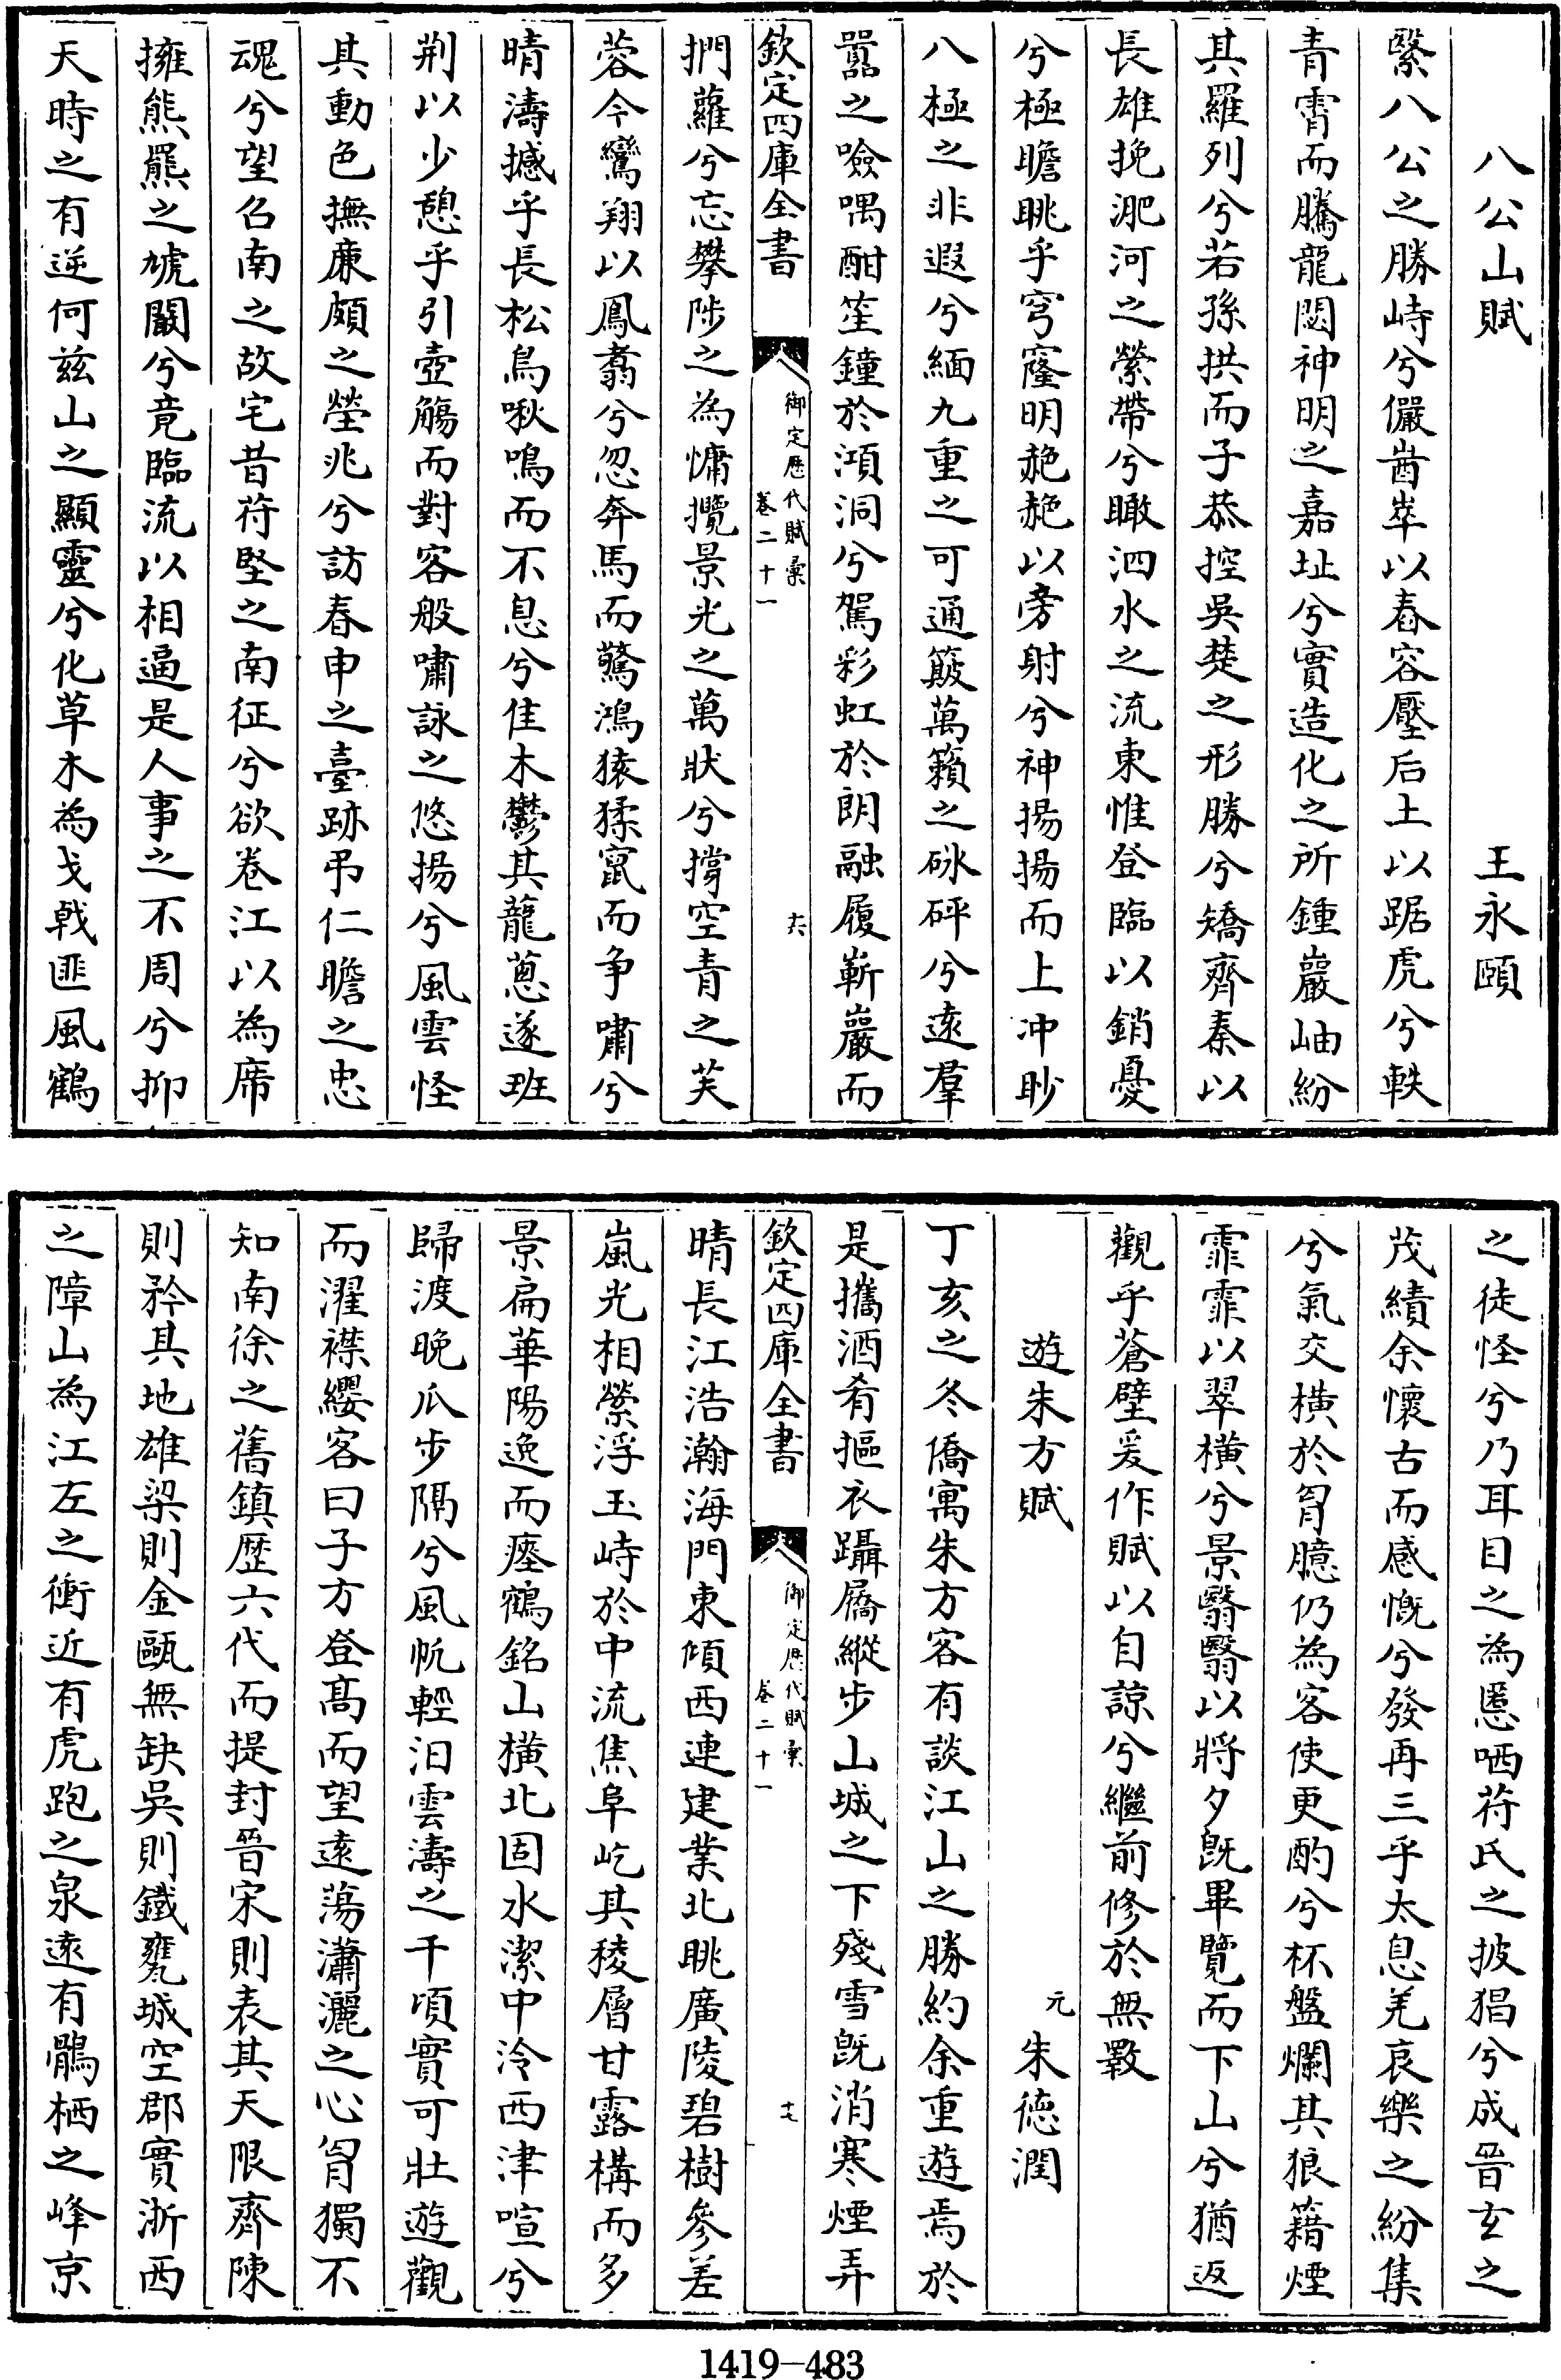 八公山賦　王永頤
繄八公之勝峙兮儼崷崒以春容壓后土以踞虎兮軼
青霄而騰龍閟神明之嘉址兮實造化之所鍾巖岫紛
其羅列兮若孫拱而子恭控吳楚之形勝兮矯齊秦以
長雄挽淝河之縈帶兮瞰泗水之流東惟登臨以銷憂
兮極瞻眺乎穹窿明赩赩以旁射兮神揚揚而上冲眇
八極之非遐兮緬九重之可通簸萬籟之砅砰兮遠羣
嚣之噞喁酣笙鐘於澒洞兮駕彩虹於朗融履嶄巖而
欽定四庫全書
御定歷代賦彙
卷二十一
十六
捫蘿兮忘攀陟之為慵攬景光之萬狀兮撐空青之芙
蓉今鸞翔以鳳翥兮忽奔馬而驚鴻猿猱竄而争嘯兮
晴濤撼乎長松鳥啾鳴而不息兮佳木鬱其蘢蔥遂班
荆以少憩乎引壺觴而對客般嘯詠之悠揚兮風雲怪
其動色撫亷頗之塋兆兮訪春申之臺跡弔仁瞻之忠
魂兮望召南之故宅昔苻堅之南征兮欲卷江以為席
擁熊羆之虓闞兮竟臨流以相逼是人事之不周兮抑
天時之有逆何兹山之顯靈兮化草木為戈戟匪風鶴
之徒怪兮乃耳目之為慝哂苻氏之披猖兮成晉玄之
茂績余懷古而感慨兮發再三乎太息羌哀樂之紛集
兮氣交横於胷臆仍為客使更酌兮杯盤爛其狼籍煙
霏霏以翠横兮景翳翳以將夕旣畢覽而下山兮猶返
觀乎蒼壁爰作賦以自諒兮繼前修於無斁
遊朱方賦　元　朱德潤
丁亥之冬僑寓朱方客有談江山之勝約余重遊焉於
是攜酒肴摳衣躡屩縱步山城之下殘雪旣消寒煙弄
欽定四庫全書
御定歷代賦彙
卷二十一
十七
晴長江浩瀚海門東傾西連建業北眺廣陵碧樹參差
嵐光相縈浮玉峙於中流焦阜屹其稜層甘露構而多
景扁華陽逸而瘞鶴銘山横北固水潔中泠西津喧兮
歸渡晚瓜步隔兮風帆輕汨雲濤之千頃實可壯遊觀
而濯襟纓客曰子方登高而望遠蕩瀟灑之心胷獨不
知南徐之舊鎮歷六代而提封晉宋則表其天限齊陳
則矜其地雄梁則金甌無缺吳則鐵甕城空郡實浙西
之障山為江左之衝近有虎跑之泉遠有鶻栖之峰京
1419—483